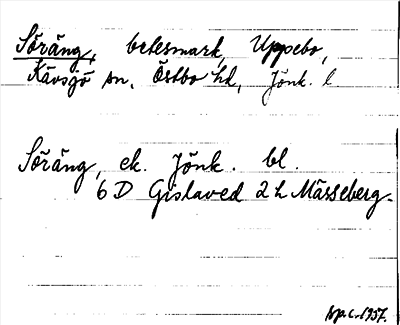 Söräng, betesmark, Uppebo,
Kävsjö sn, Östbo hd, Jönk. l
Söräng, ek. Jönk. bl.
6 D Gislaved 2 h Mässeberg.
1957.